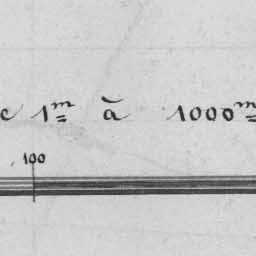 1m à 1000m
100